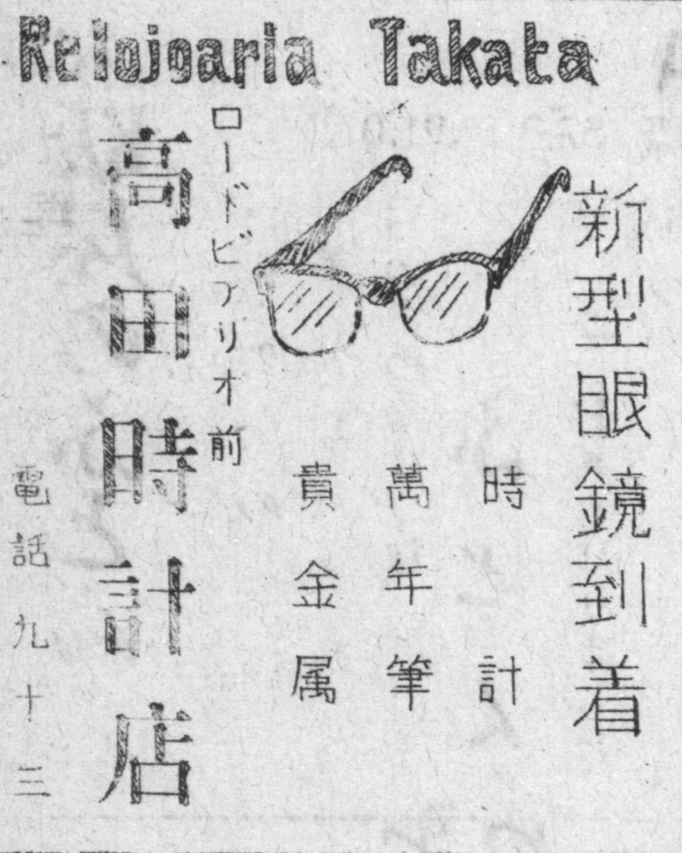 Relojoaria Takata
新型眼鏡到着
時計
萬年筆
貴金属
ロードビアリオ前
高田時計店
電話九十三